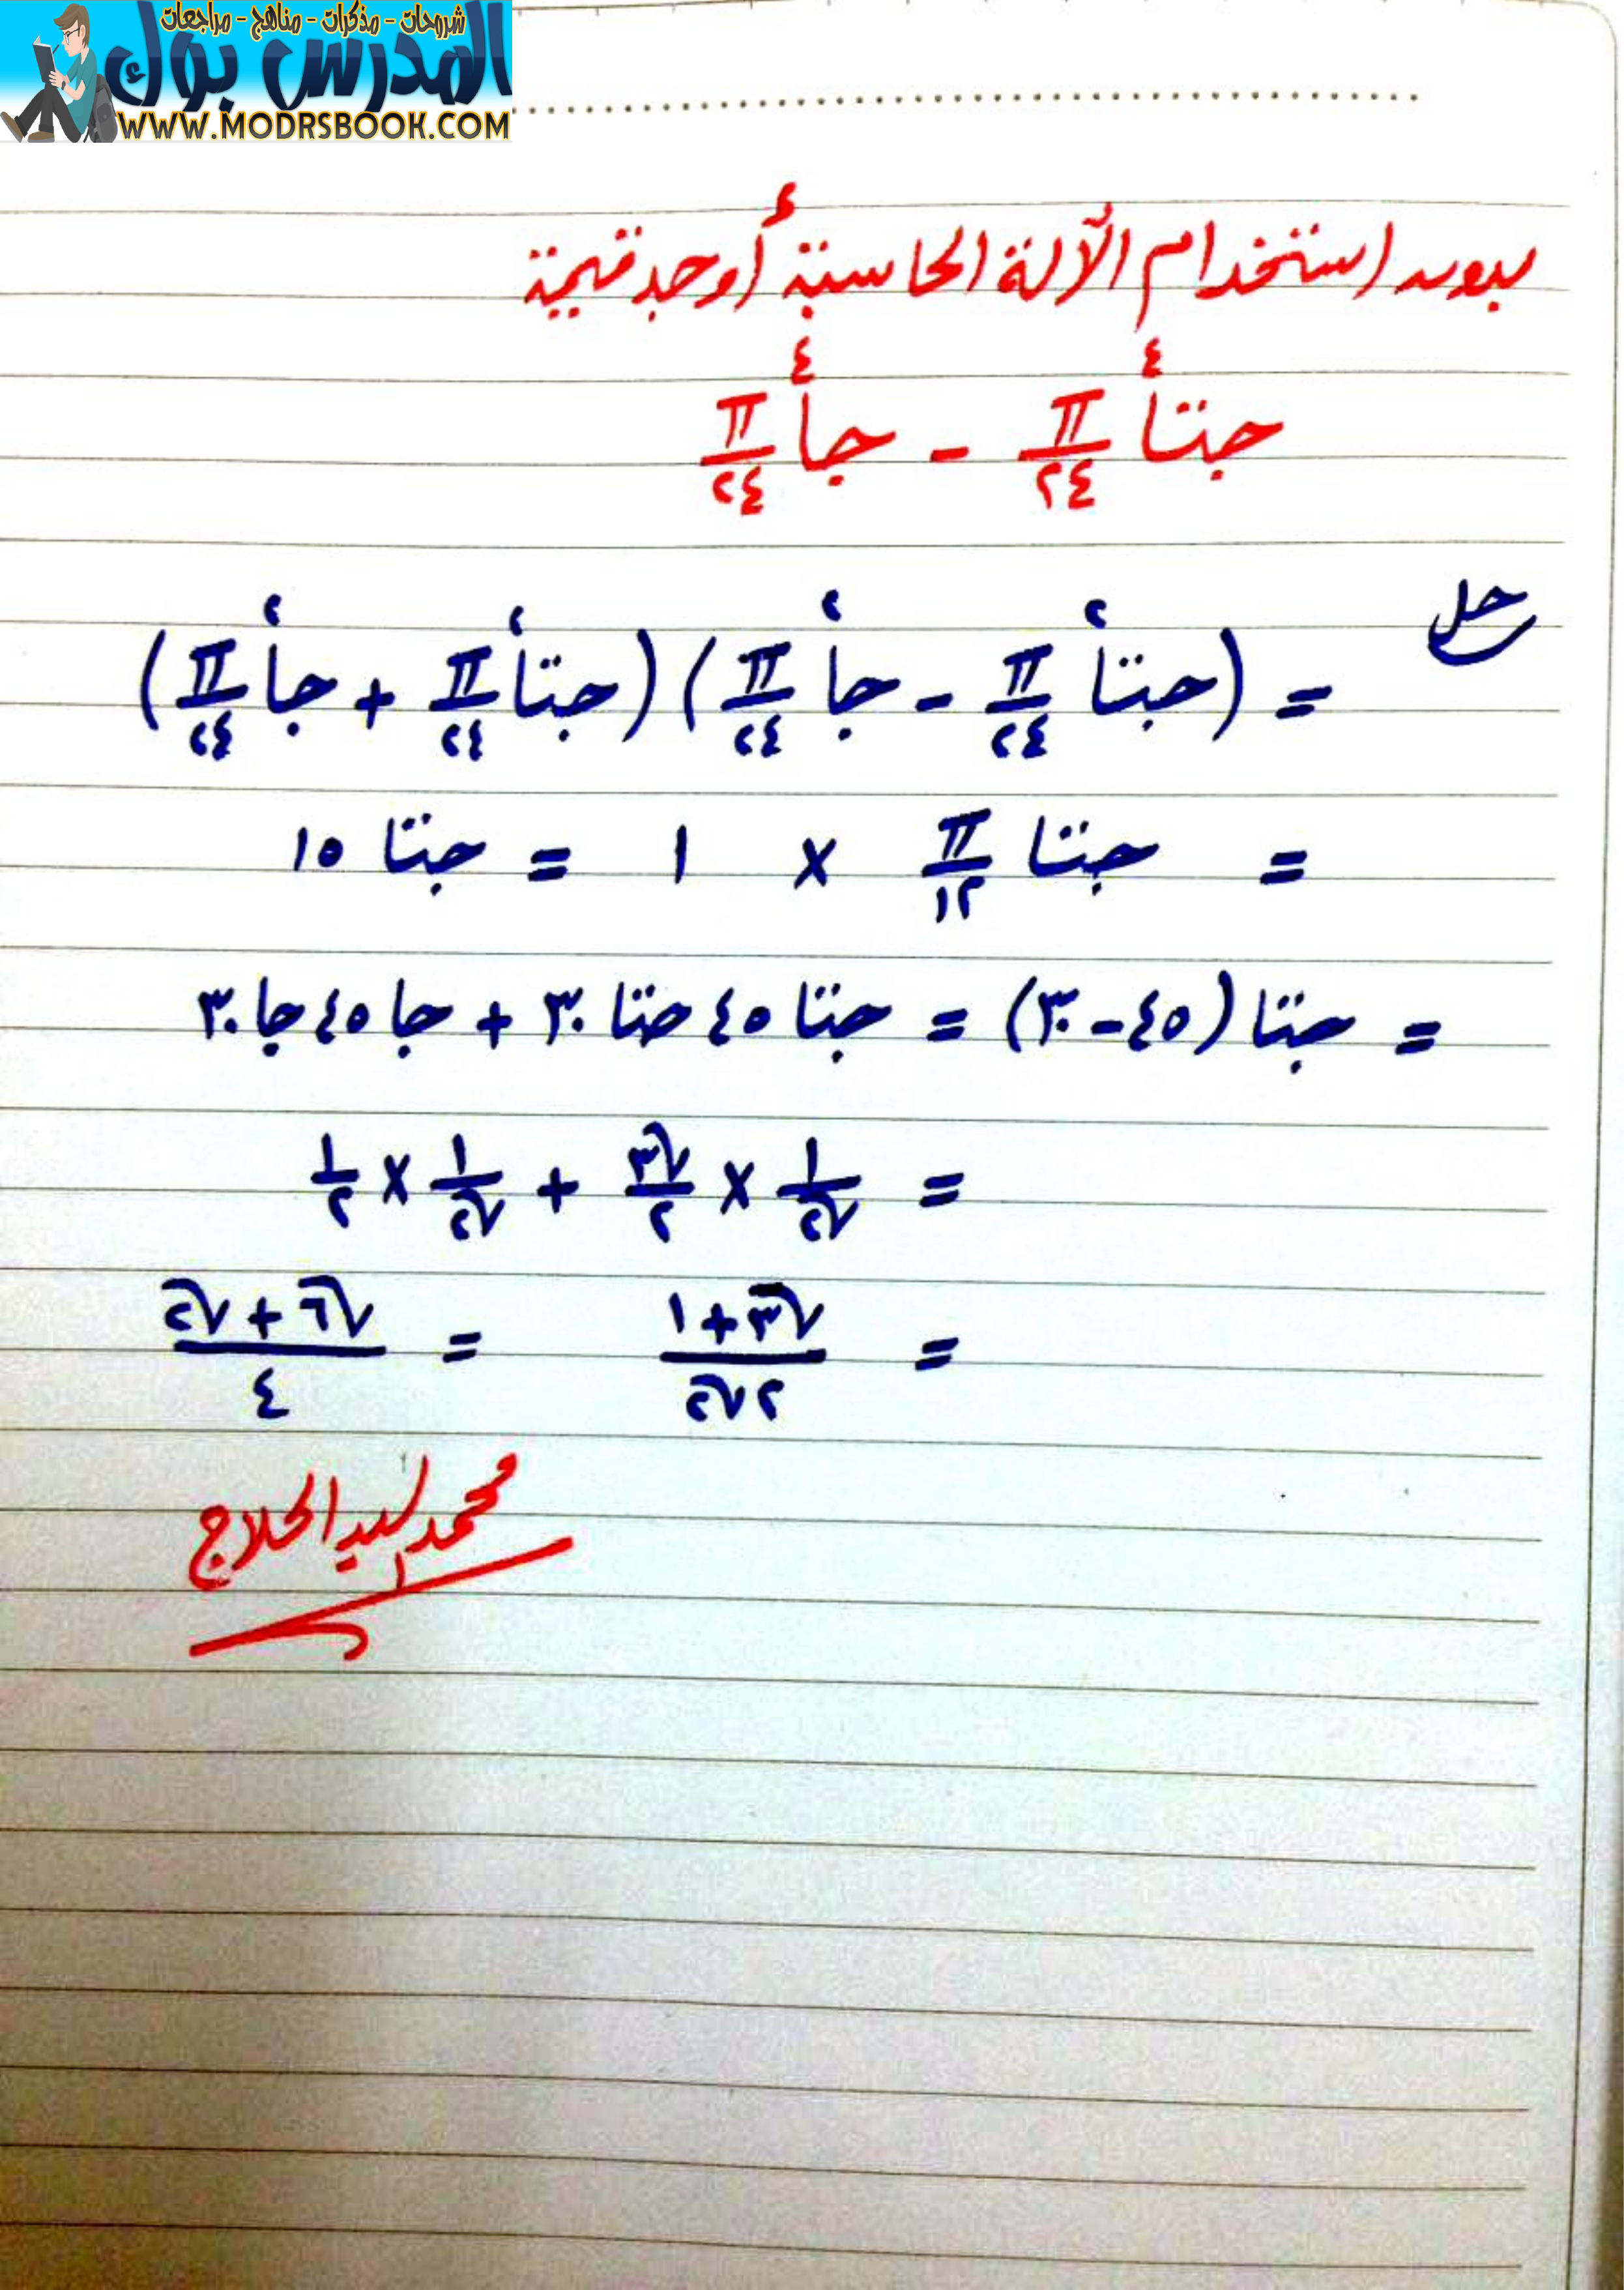 شروحات - مذكرات - مناهج - مراجعات
المدرس بوك
WWW.MODRSBOOK.COM
بدون استخدام الآلة الحاسبة أوجد قيمة
جتا٤ π/٢٤ - جا٤ π/٢٤
حل
= (جتا٢ π/٢٤ - جا٢ π/٢٤) (جتا٢ π/٢٤ + جا٢ π/٢٤)
= جتا π/١٢ × ١ = جتا ١٥
= جتا (٤٥ - ٣٠) = جتا ٤٥ جتا ٣٠ + جا ٤٥ جا ٣٠
= ١/√٢ × √٣/٢ + ١/√٢ × ١/٢
= (√٣ + ١)/(٢√٢) = (√٦ + √٢)/٤
محمد السيد الحلاج